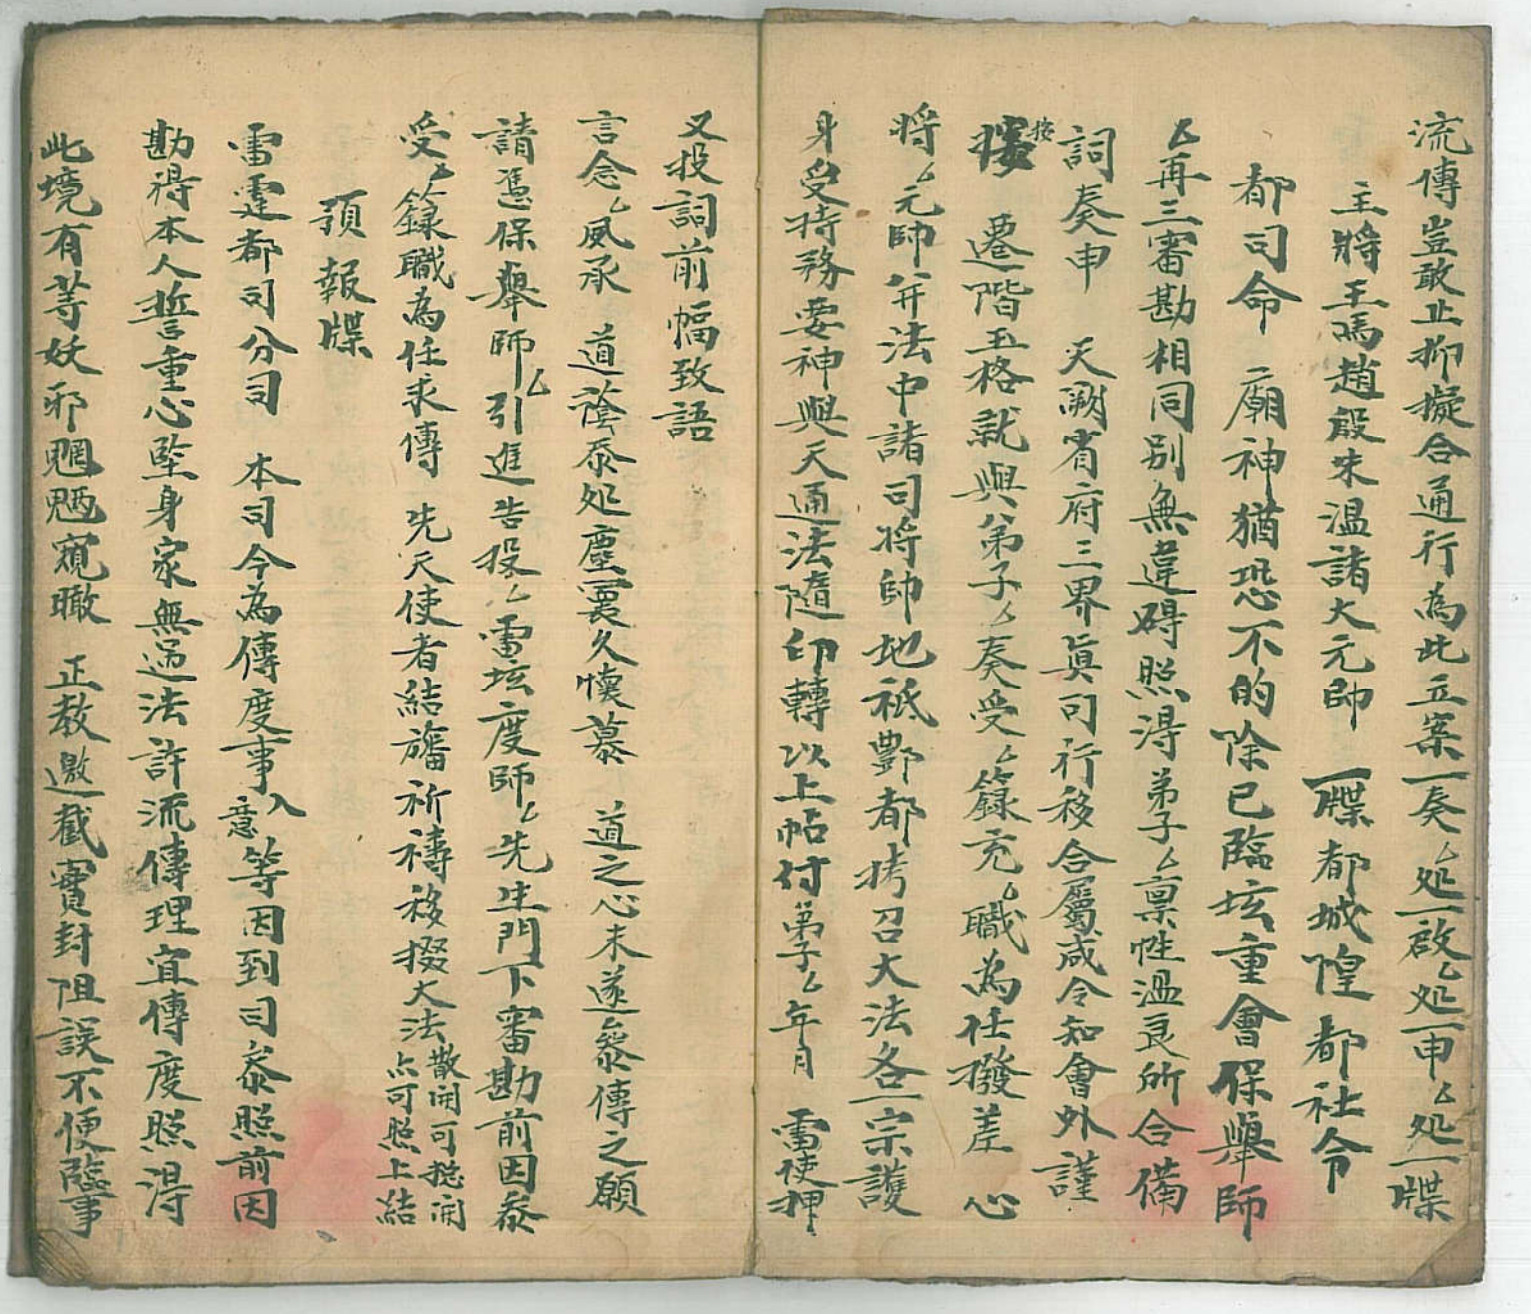 流傳豈敢止抑擬合通行為此立案一奏厶処一啟厶処一申厶処一牒
主將王馬趙殷朱温諸大元帥　一牒都城隍都社令
都司命　廟神猶恐不的除已臨坛重會保舉師
厶再三審勘相同別無違碍照淂弟子厶禀性温良所合備
詞奏申　天闕省府三界真司行移合屬咸令知會外謹
按　遷階五格就與弟子厶奏受厶籙充厶職為任撥差　心
将厶元帥并法中諸司将帥地祇酆都拷召大法各一宗護
身受持務要神與天通法隨印轉以上帖付弟子厶年月　雷使押
又投詞前幅致語
言念厶夙承　道蔭忝処塵寰久懷慕　道之心未遂參傳之願
請憑保舉師厶引進告投厶雷坛度師厶先生門下審勘前因叅
受厶籙職為任求傳　先天使者結旛祈禱移掇大法散開可㧾開点可照上結
預報牒
雷霆都司分司　本司今為傳度事入意等因到司叅照前因
勘得本人誓重心堅身家無过法許流傳理宜傳度照淂
此境有等妖邪魍魎窺瞰　正教邀截賫封阻誤不便臨事